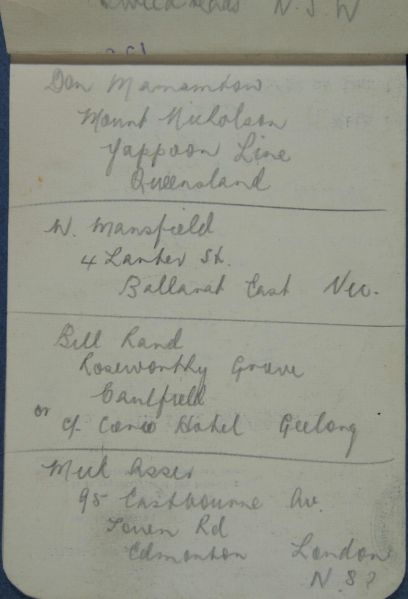 Tweed Heads N.S.W
Don
Mount Nicholson
Yappoon Line
Queensland
W. Mansfield
4 St.
Ballarat East Vic.
Bill Rand
Roseworthy Grove
Caulfield
or c/. Corio Hotel Geelong
95 Eastbourne Av.
Town Rd
Edmonton London
N.